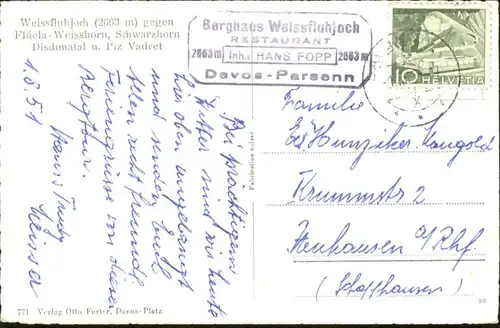 Weissfluhjoch (2663 m) gegen
Flüela-Weisshorn, Schwarzhorn
Dischmatal u. Piz Vadret
Berghaus Weissfluhjoch
RESTAURANT
2663 m Inh.: HANS FOPP 2663 m
Davos-Parsenn
10 HELVETIA
1.8.51
Bei prächtigem
Wetter sind wir heute
hier oben angelangt
und senden Euch
Allen recht freundl.
Feriengrüsse von dieser
Bergtour.
Hans Trudy
Familie
Ed. Hunziker-Mangold
Krummstr 2
Neuhausen a/Rhf.
(Schaffhausen)
771 Verlag Otto Furter, Davos-Platz